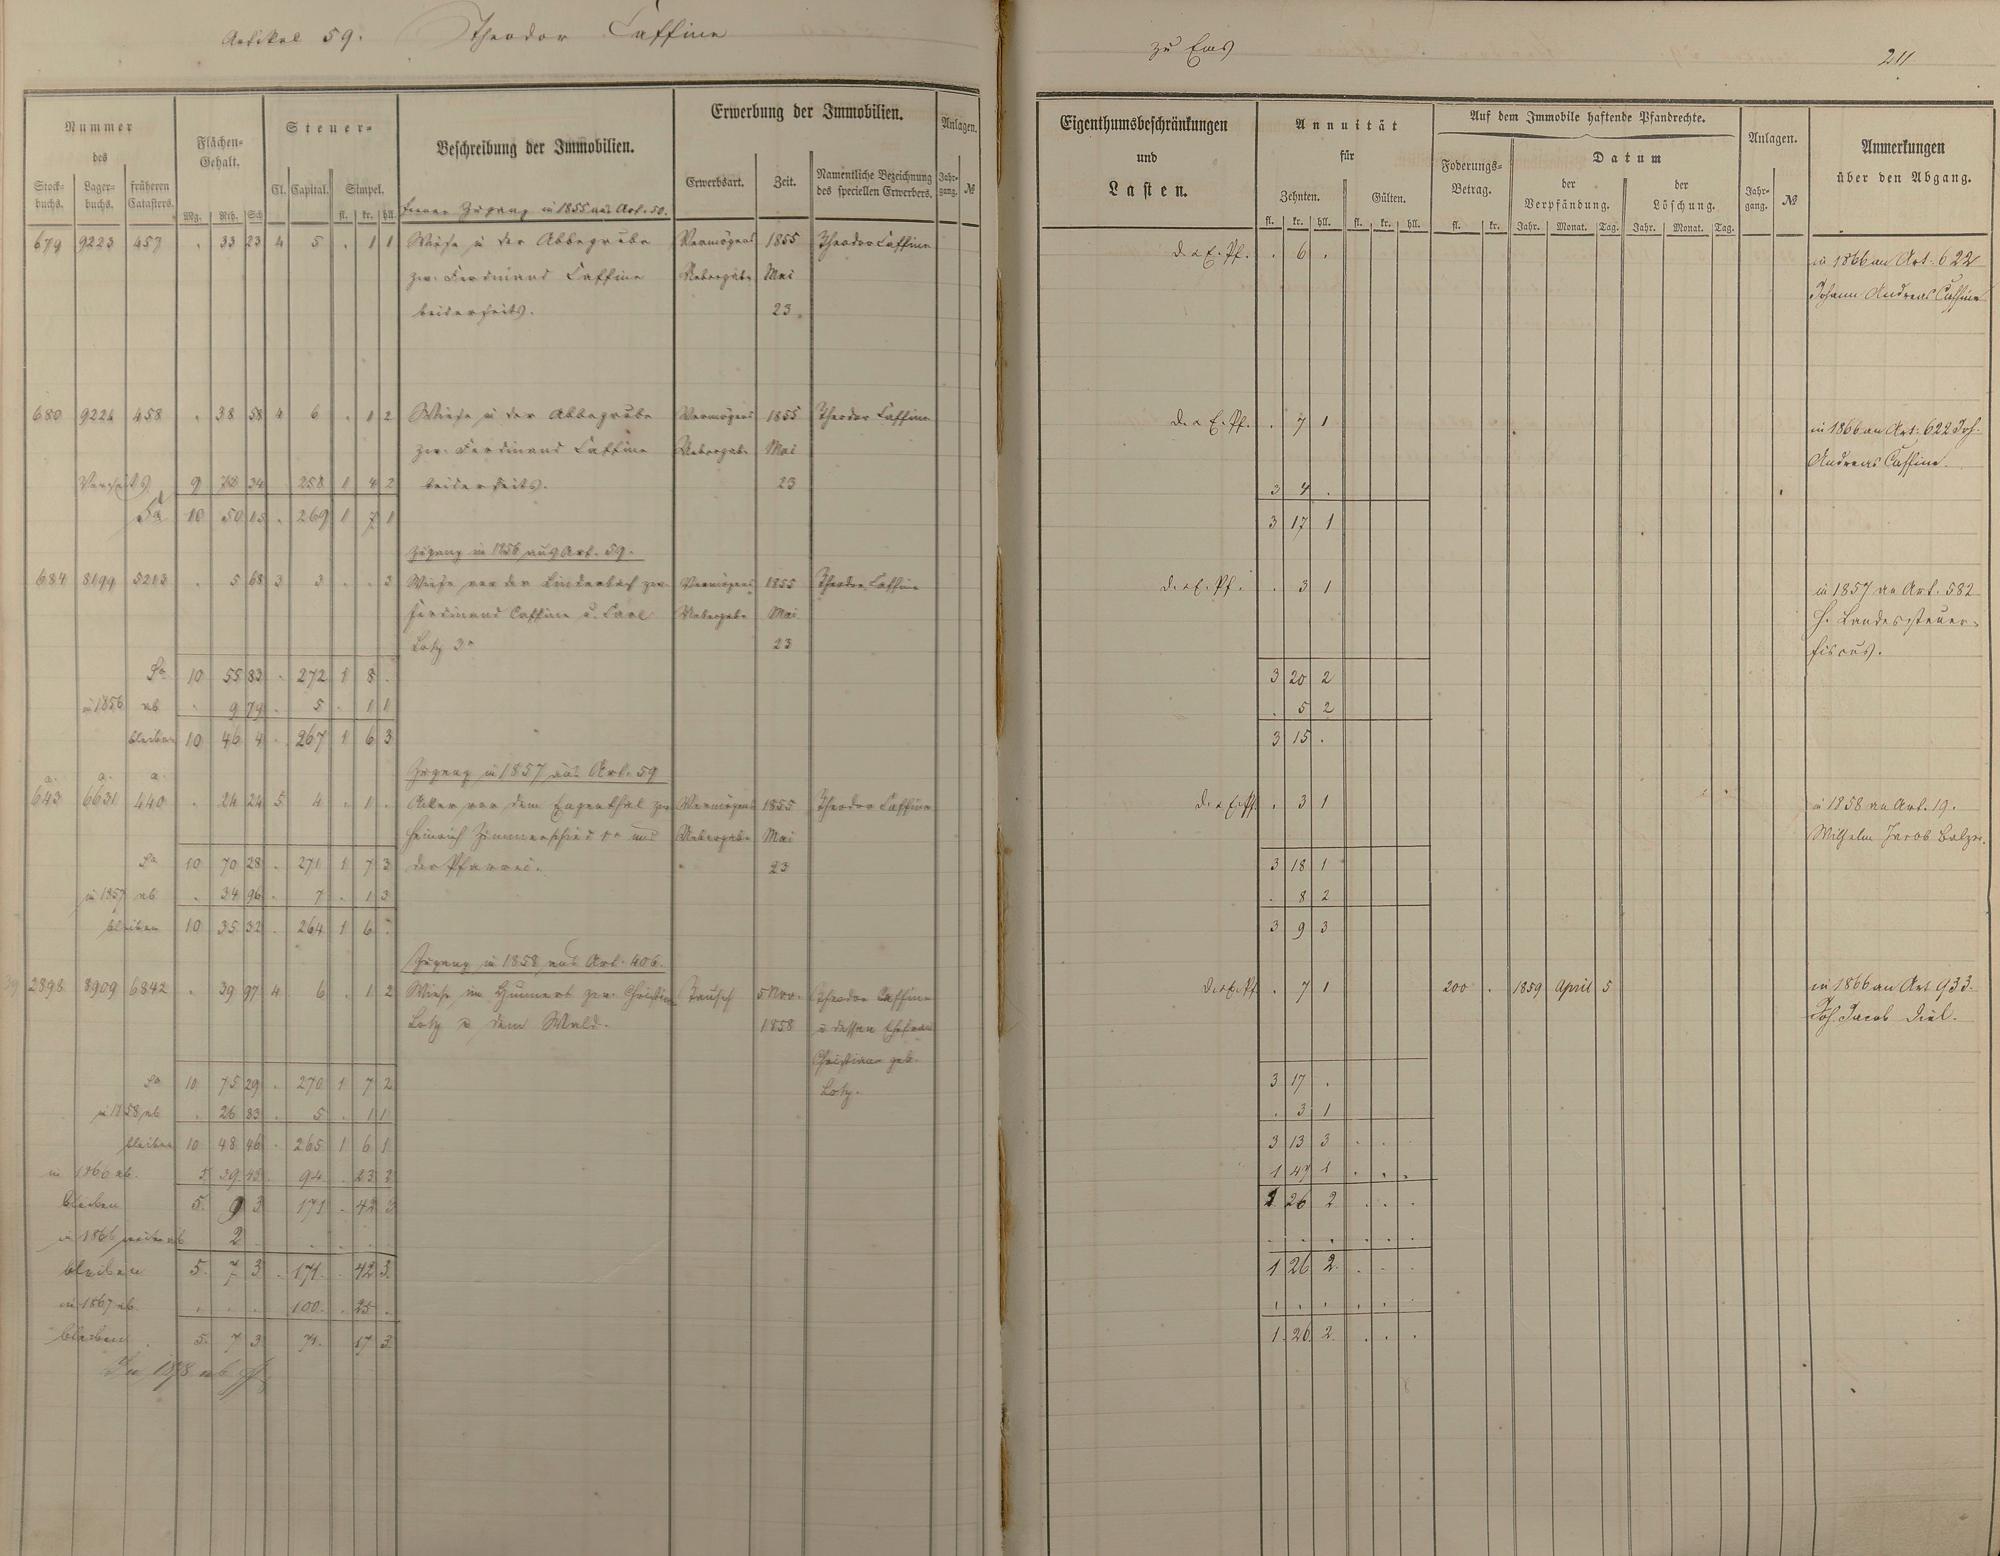 Artikel 59. Theodor Caffine
zu Ems
211
Nummer des
Stock-buchs. Lager-buchs. früheren Catasters.
Flächen-Gehalt.
Mg. Rth. Sch
Steuer-
Cl. Capital. Simpel.
fl. kr. hll.
Beschreibung der Immobilien.
Erwerbung der Immobilien.
Erwerbsart. Zeit. Namentliche Bezeichnung des speciellen Erwerbers.
Anlagen.
Jahr-gang. №
Eigenthumsbeschränkungen und Lasten.
Annuität für
Zehnten. Gülten.
fl. kr. hll. fl. kr. hll.
Auf dem Immobile haftende Pfandrechte.
Foderungs-Betrag.
fl. kr.
Datum
der Verpfändung. der Löschung.
Jahr. Monat. Tag. Jahr. Monat. Tag.
Anlagen.
Jahr-gang. №
Anmerkungen über den Abgang.
Ferner Zugang in 1855 aus Art. 50.
679 9223 457 . 33 23 4 5 . 1 1 Wiese in der Abbegrube Vermögens 1855 Theodor Caffine D. a E. Pf. . 6 . in 1866 an Art. 622
zw. Ferdinand Caffine Uebergabe Mai Johann Andreas Caffine
beiderseits. 23.
680 9224 458 . 38 58 4 6 . 1 2 Wiese in der Abbegrube Vermögens 1855 Theodor Caffine D. a E. Pf. . 7 1 in 1866 an Art. 622 Joh.
zw. Ferdinand Caffine Uebergabe Mai Andreas Caffine.
9 78 34 258 1 4 2 beiderseits. 23 3 4 .
Sa 10 50 15 . 269 1 7 1 3 17 1
Zugang in 1856 aus Art. 59.
684 8199 5213 . 5 68 3 3 . . 3 Wiese vor der Lindenbach zw. Vermögens 1855 Theodor Caffine D. a E. Pf. . 3 1 in 1857 an Art. 582
Ferdinand Caffine u. Carl Uebergabe Mai H. Landessteuer-
Lotz 3r 23 fiscus.
Sa 10 55 83 . 272 1 8 . 3 20 2
in 1856 ab . 9 79 . 5 . 1 1 . 5 2
bleiben 10 46 4 . 267 1 6 3 3 15 .
Zugang in 1857 aus Art. 59
a. a. a.
643 6631 440 . 24 24 5 4 . 1 . Acker vor dem Eugenthal zw. Vermögens 1855 Theodor Caffine D. a E. Pf. . 3 1 in 1858 an Art. 19.
Heinrich Zimmerschied 1r und Uebergabe Mai Wilhelm Jacob Balzer.
Sa 10 70 28 . 271 1 7 3 der Pfarrei. 23 3 18 1
in 1857 ab . 34 96 . 7 . 1 3 . 8 2
bleiben 10 35 32 . 264 1 6 . 3 9 3
Zugang in 1858 aus Art. 406.
2898 8909 6842 . 39 97 4 6 . 1 2 Wiese im Hummers zw. Christian Tausch 5 Nov. Theodor Caffine D. a E. Pf. . 7 1 200 . 1859 April 5 in 1866 an Art 933.
Lotz u dem Wald. 1858 u dessen Ehefrau Joh. Jacob Diel.
Christiane geb.
Lotz.
Sa 10 75 29 . 270 1 7 2 3 17 .
in 1858 ab . 26 83 . 5 . 1 1 . 3 1
bleiben 10 48 46 . 265 1 6 1 3 13 3 . .
in 1866 ab. 5 39 43 . 94 . 23 2 1 47 1 . . .
bleiben 5. 9 3 171 . 42 3 1 26 2 . . .
in 1866 weiter ab 2 . . . . . . . . . .
bleiben 5. 7 3 . 171 . 42 3. 1 26 2. . . .
in 1867 ab. . . . 100. . 25 . . . . . . .
bleiben 5. 7 3 71. 17 3 1. 26. 2. . . .
In 1878 ab